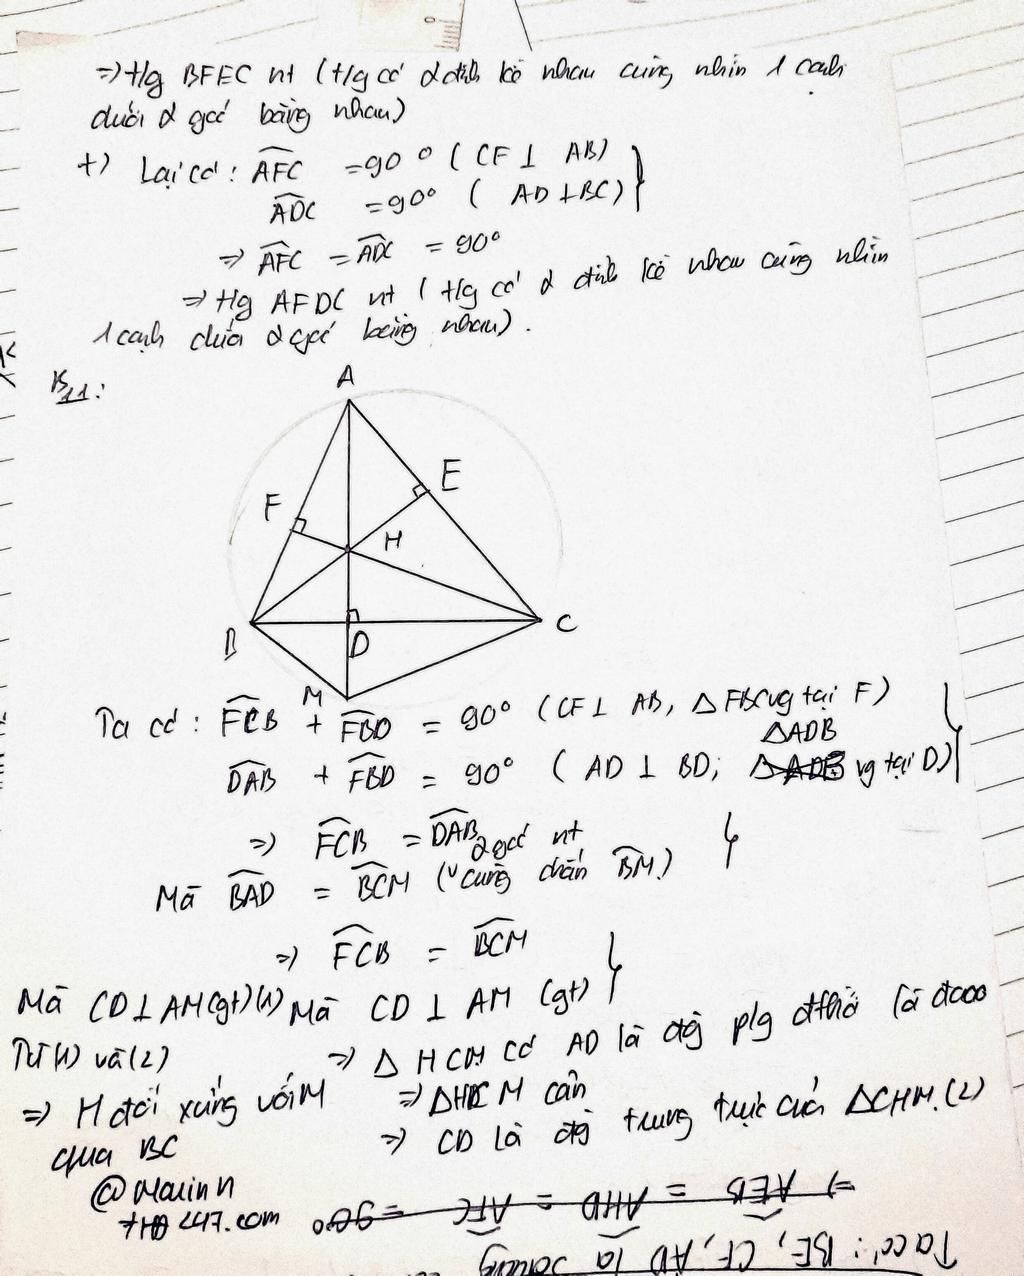 => t/g BFEC nt ( t/g có 2 đỉnh kề nhau cùng nhìn 1 cạnh
dưới 2 góc bằng nhau)
+) Lại có: AFC = 90° ( CF ⊥ AB)
ADC = 90° ( AD ⊥ BC)
=> AFC = ADC = 90°
=> t/g AFDC nt ( t/g có 2 đỉnh kề nhau cùng nhìn
1 cạnh dưới 2 góc bằng nhau).
B11:
A
E
F
H
B
D
C
M
Ta có: FCB + FBD = 90° (CF ⊥ AB, △FBC vg tại F)
△ADB
DAB + FBD = 90° ( AD ⊥ BD; vg tại D)
=> FCB = DAB
2 góc nt
Mà BAD = BCM ( cùng chắn BM)
=> FCB = BCM
Mà CD ⊥ AM (gt) (1)
Mà CD ⊥ AM (gt)
Từ (1) và (2)
=> △ HCM có AD là đg p/g đthời là đcao
=> H đối xứng với M
=> △HCM cân
qua BC
=> CD là đg trung trực của △CHM. (2)
@Mouinn
247.com
=> AEB = AHD = AFC = 90°
Ta có: BE, CF, AD là